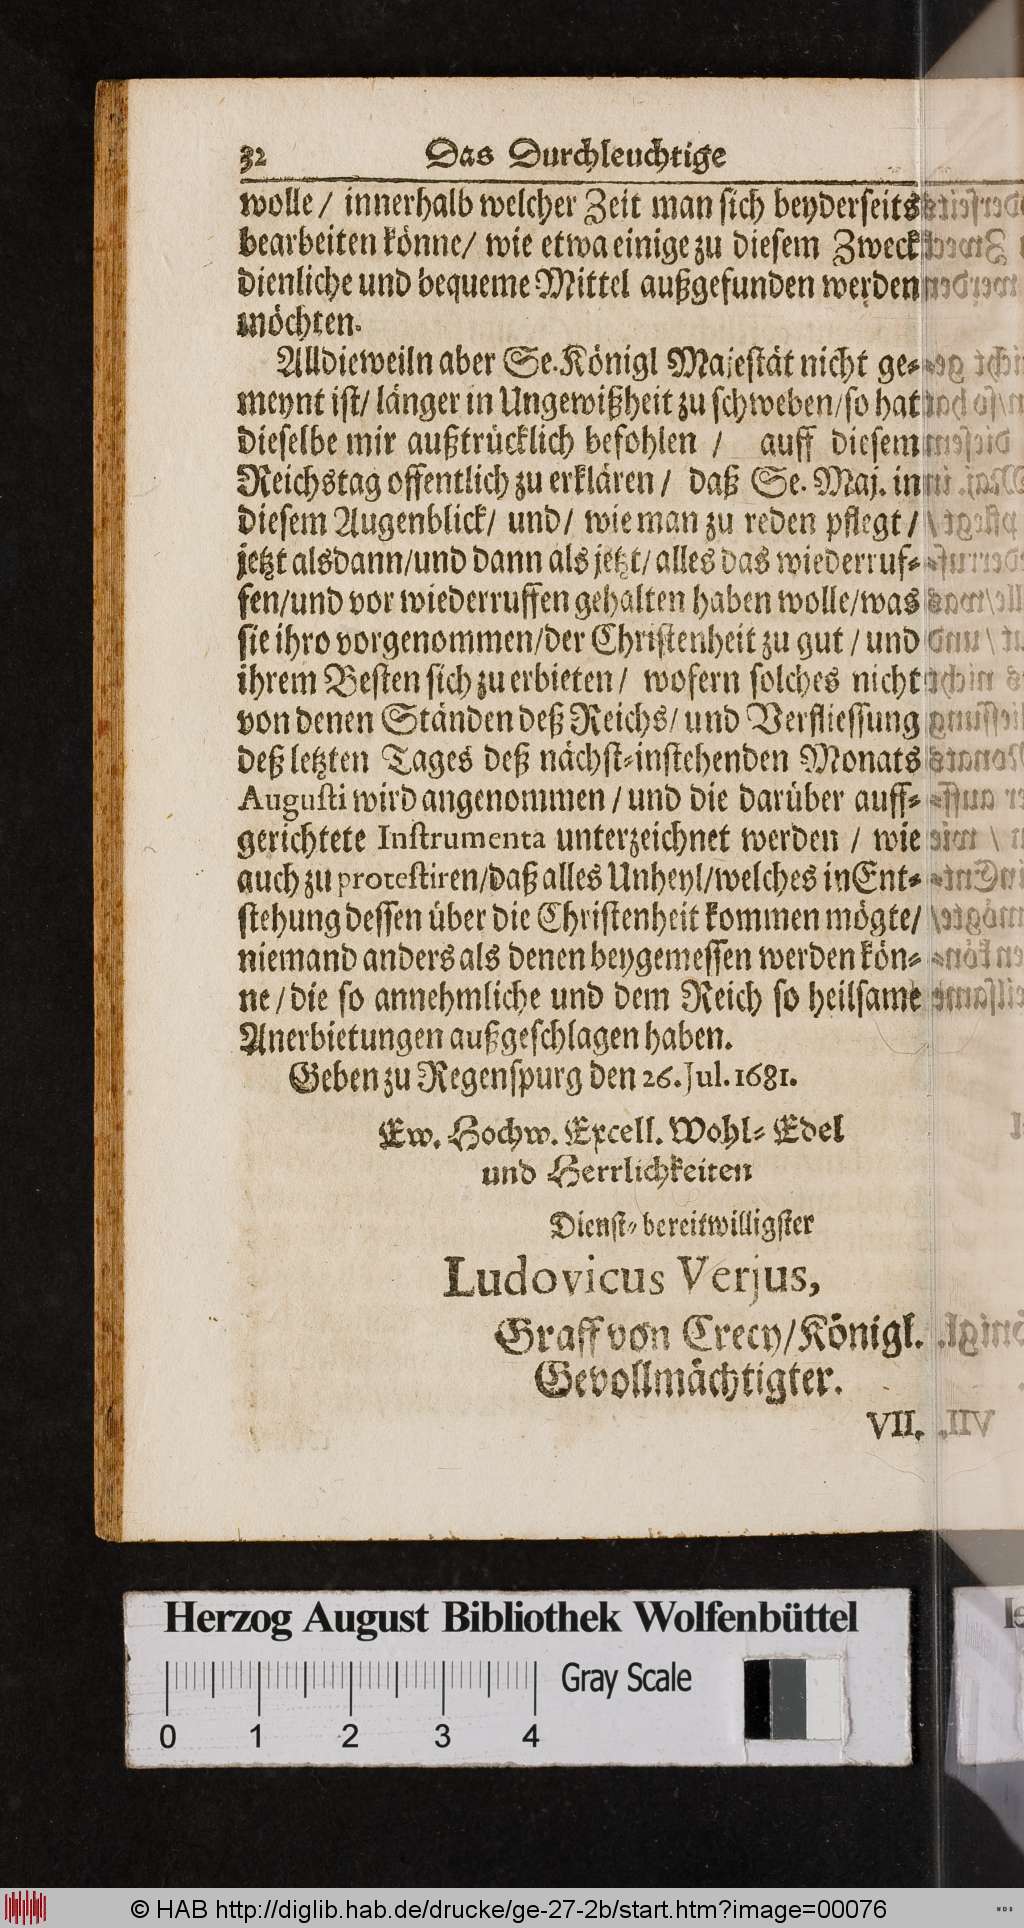 32 Das Durchleuchtige
wolle / innerhalb welcher Zeit man sich beyderseits
bearbeiten könne/ wie etwa einige zu diesem Zweck
dienliche und bequeme Mittel außgefunden werden
möchten.
Alldieweiln aber Se. Königl Majestät nicht ge-
meynt ist/ länger in Ungewißheit zu schweben/so hat
dieselbe mir außtrücklich befohlen / auff diesem
Reichstag offentlich zu erklären / daß Se. Maj. in
diesem Augenblick/ und/ wie man zu reden pflegt /
jetzt alsdann/und dann als jetzt/ alles das wiederruf-
fen/und vor wiederruffen gehalten haben wolle/was
sie ihro vorgenommen/der Christenheit zu gut / und
ihrem Besten sich zu erbieten / wofern solches nicht
von denen Ständen deß Reichs/ und Verfliessung
deß letzten Tages deß nächst-instehenden Monats
Augusti wird angenommen / und die darüber auff-
gerichtete Instrumenta unterzeichnet werden / wie
auch zu protestiren/daß alles Unheyl/welches in Ent-
stehung dessen über die Christenheit kommen mögte/
niemand anders als denen beygemessen werden kön-
ne / die so annehmliche und dem Reich so heilsame
Anerbietungen außgeschlagen haben.
Geben zu Regenspurg den 26. Jul. 1681.
Ew. Hochw. Excell. Wohl-Edel
und Herrlichkeiten
Dienst-bereitwilligster
Ludovicus Verjus,
Graff von Crecy/Königl.
Gevollmächtigter.
VII.
Herzog August Bibliothek Wolfenbüttel
Gray Scale
0 1 2 3 4
© HAB http://diglib.hab.de/drucke/ge-27-2b/start.htm?image=00076